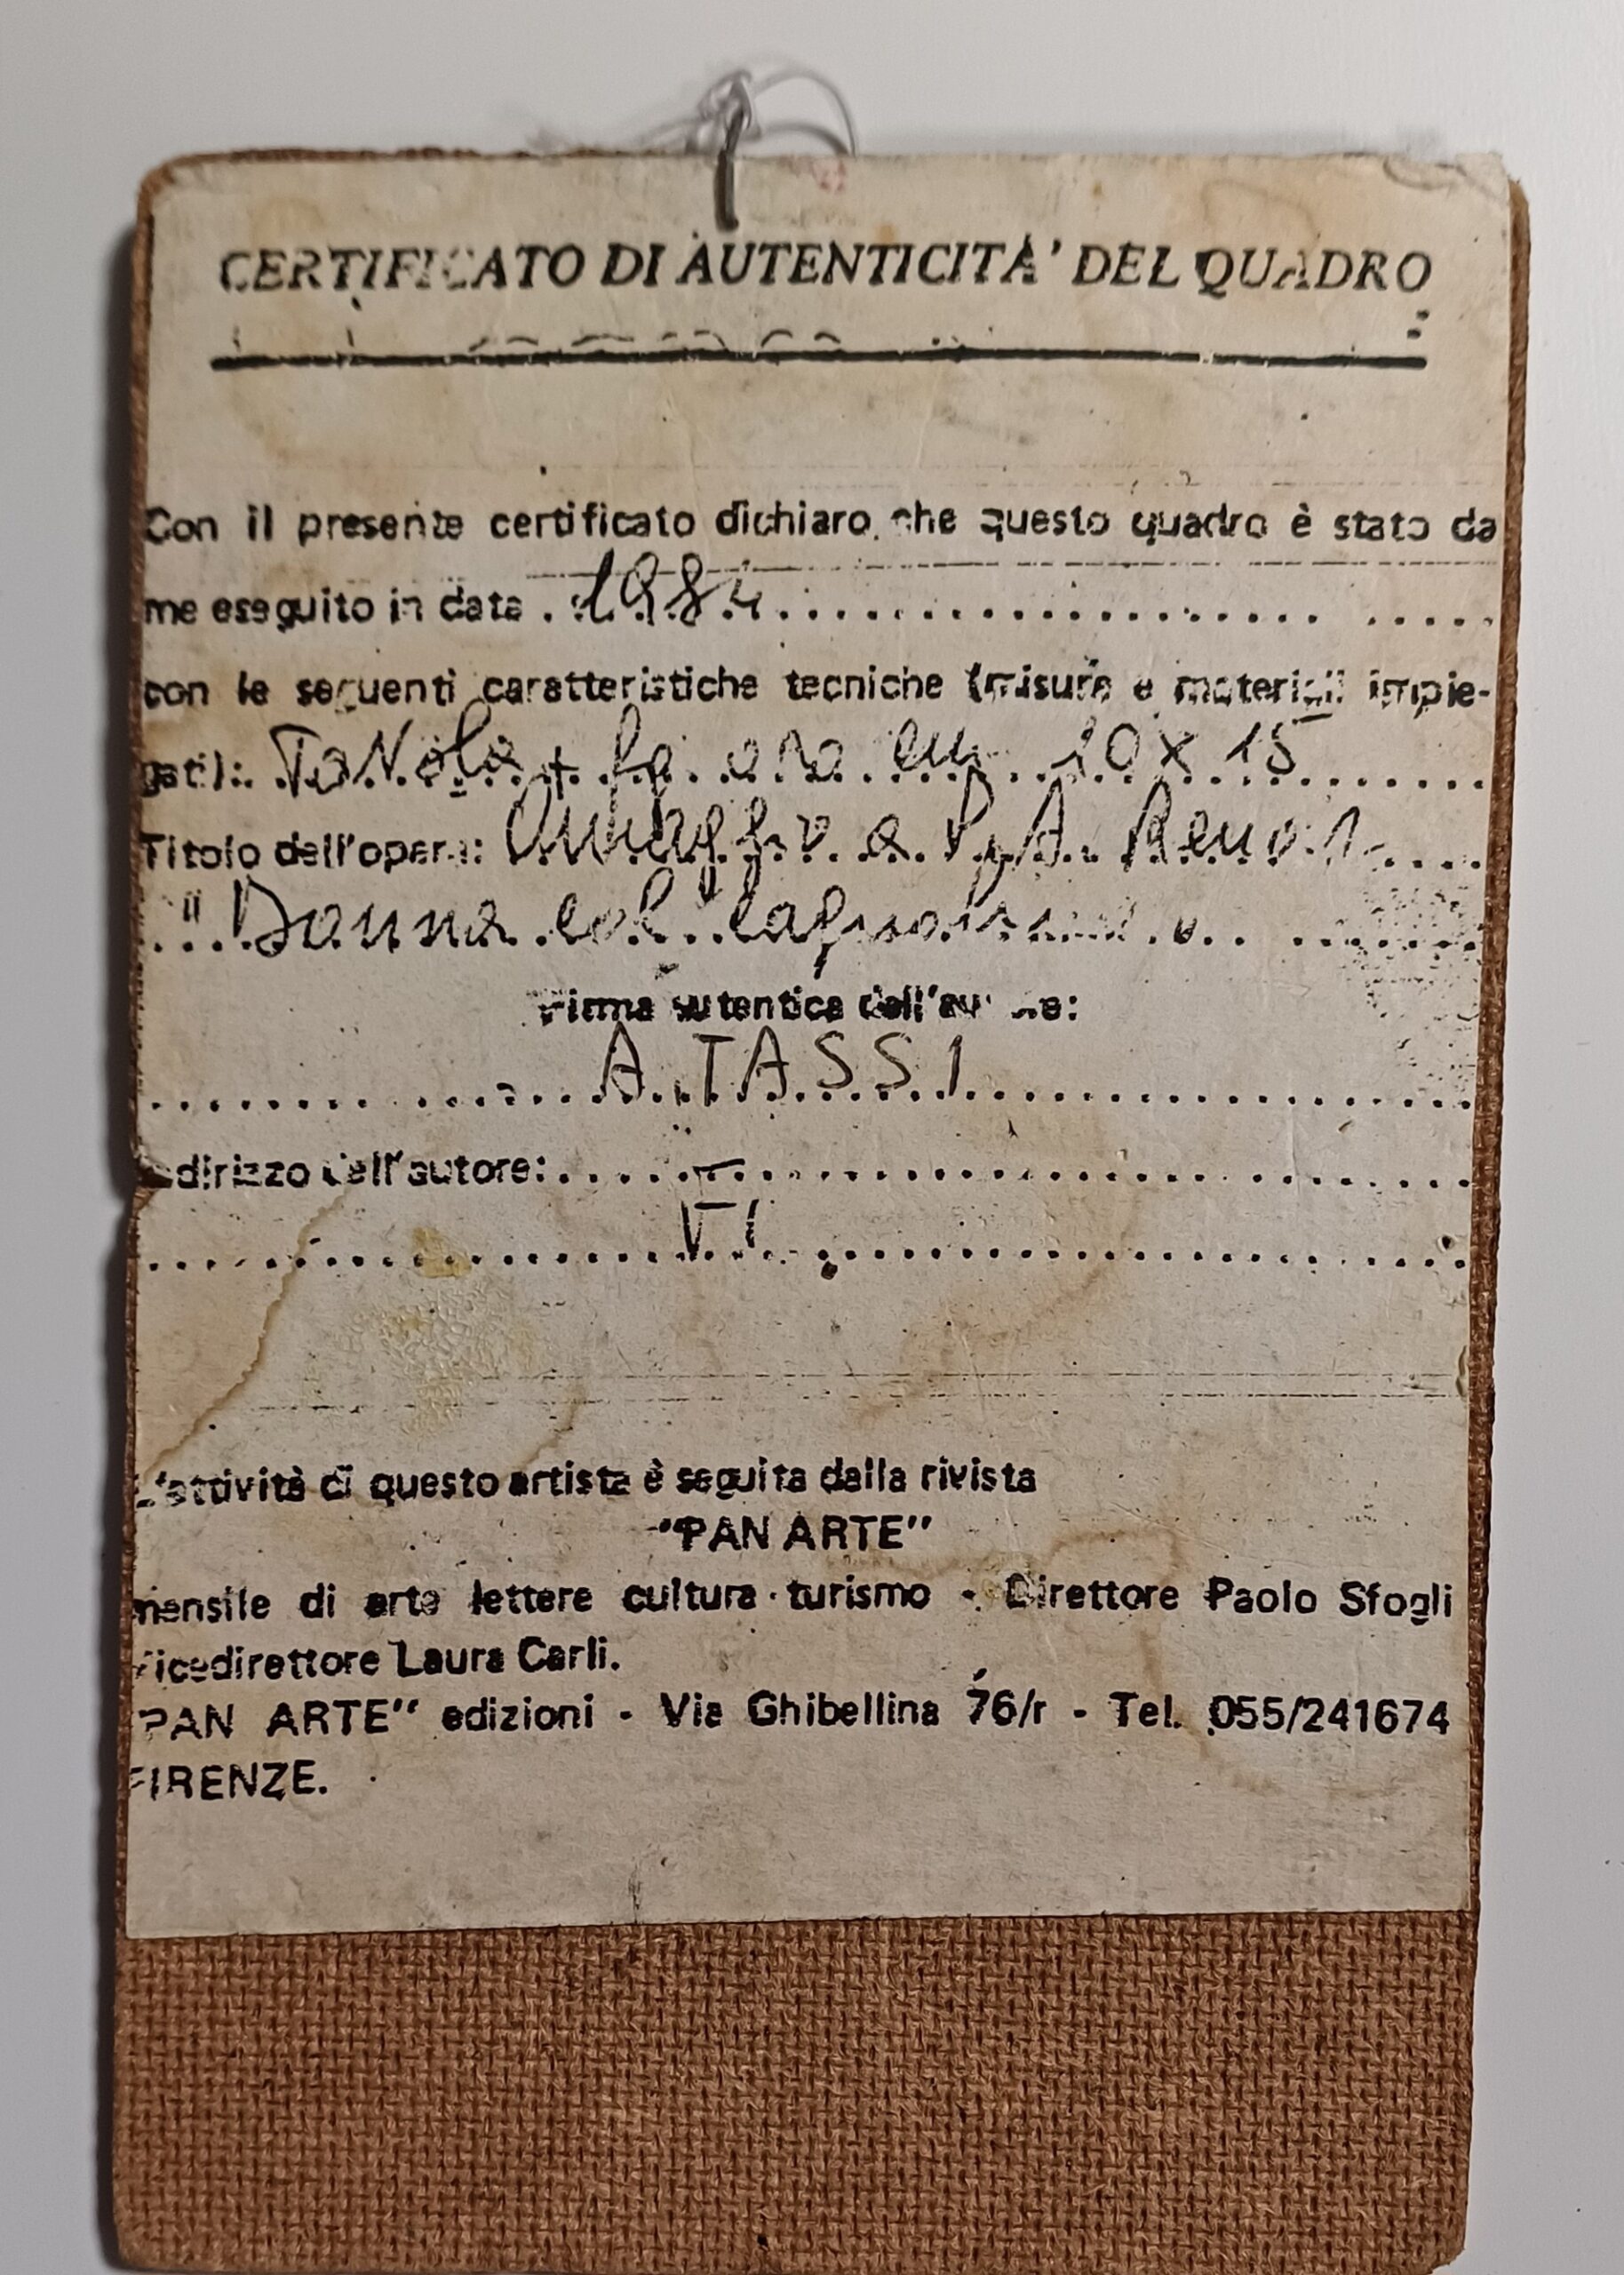 CERTIFICATO DI AUTENTICITA' DEL QUADRO
Con il presente certificato dichiaro che questo quadro è stato da
me eseguito in data 1984
con le seguenti caratteristiche tecniche (misure e materiali impie-
gati): Tavola + fo oro cm 20 x 15
Titolo dell'opera: a P. A. Renoir
"Donna col
Firma autentica dell'autore:
A. TASSI
Indirizzo dell'autore:
FI
L'attività di questo artista è seguita dalla rivista
"PAN ARTE"
mensile di arte lettere cultura turismo - Direttore Paolo Sfogli
Vicedirettore Laura Carli.
"PAN ARTE" edizioni - Via Ghibellina 76/r - Tel. 055/241674
FIRENZE.